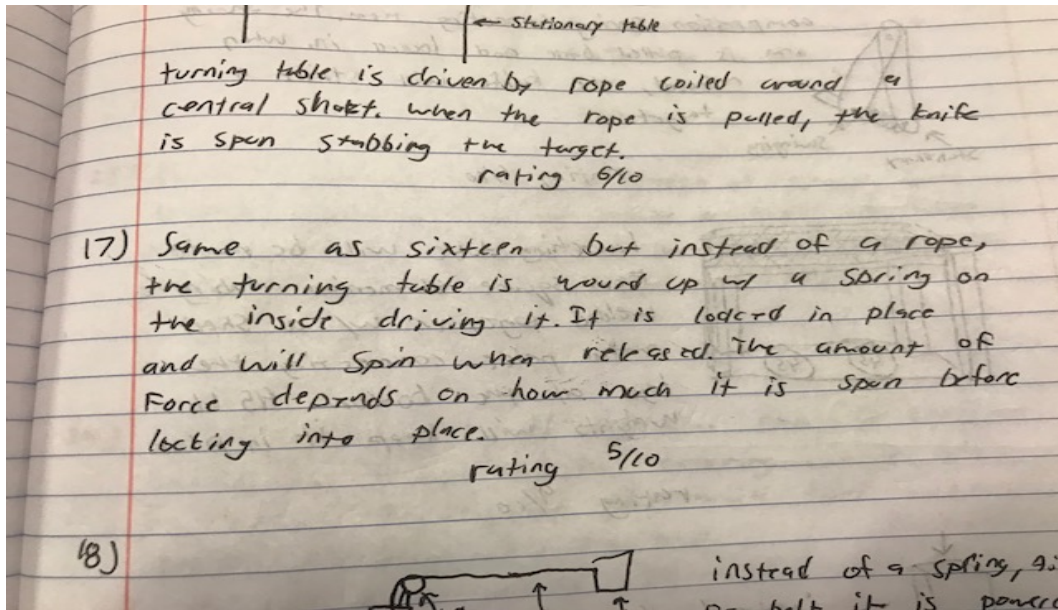 ← Stationary table
turning table is driven by rope coiled around a
central shaft. when the rope is pulled, the knife
is spun stabbing the target.
rating 6/10
17) Same as sixteen but instead of a rope,
the turning table is wound up w/ a spring on
the inside driving it. It is locked in place
and will spin when released. The amount of
Force depends on how much it is spun before
locking into place.
rating 5/10
18)
instead of a spring,
it is